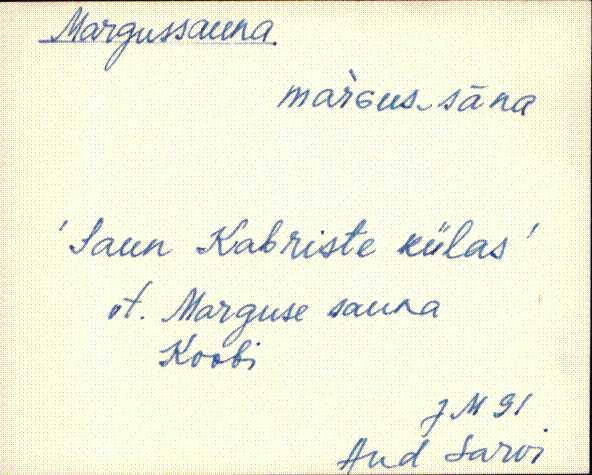 Margussauna.
màrGus‿sāna
'Saun Kabriste külas'
vt. Marguse sauna
Koobi
J M 91
And Sarvi